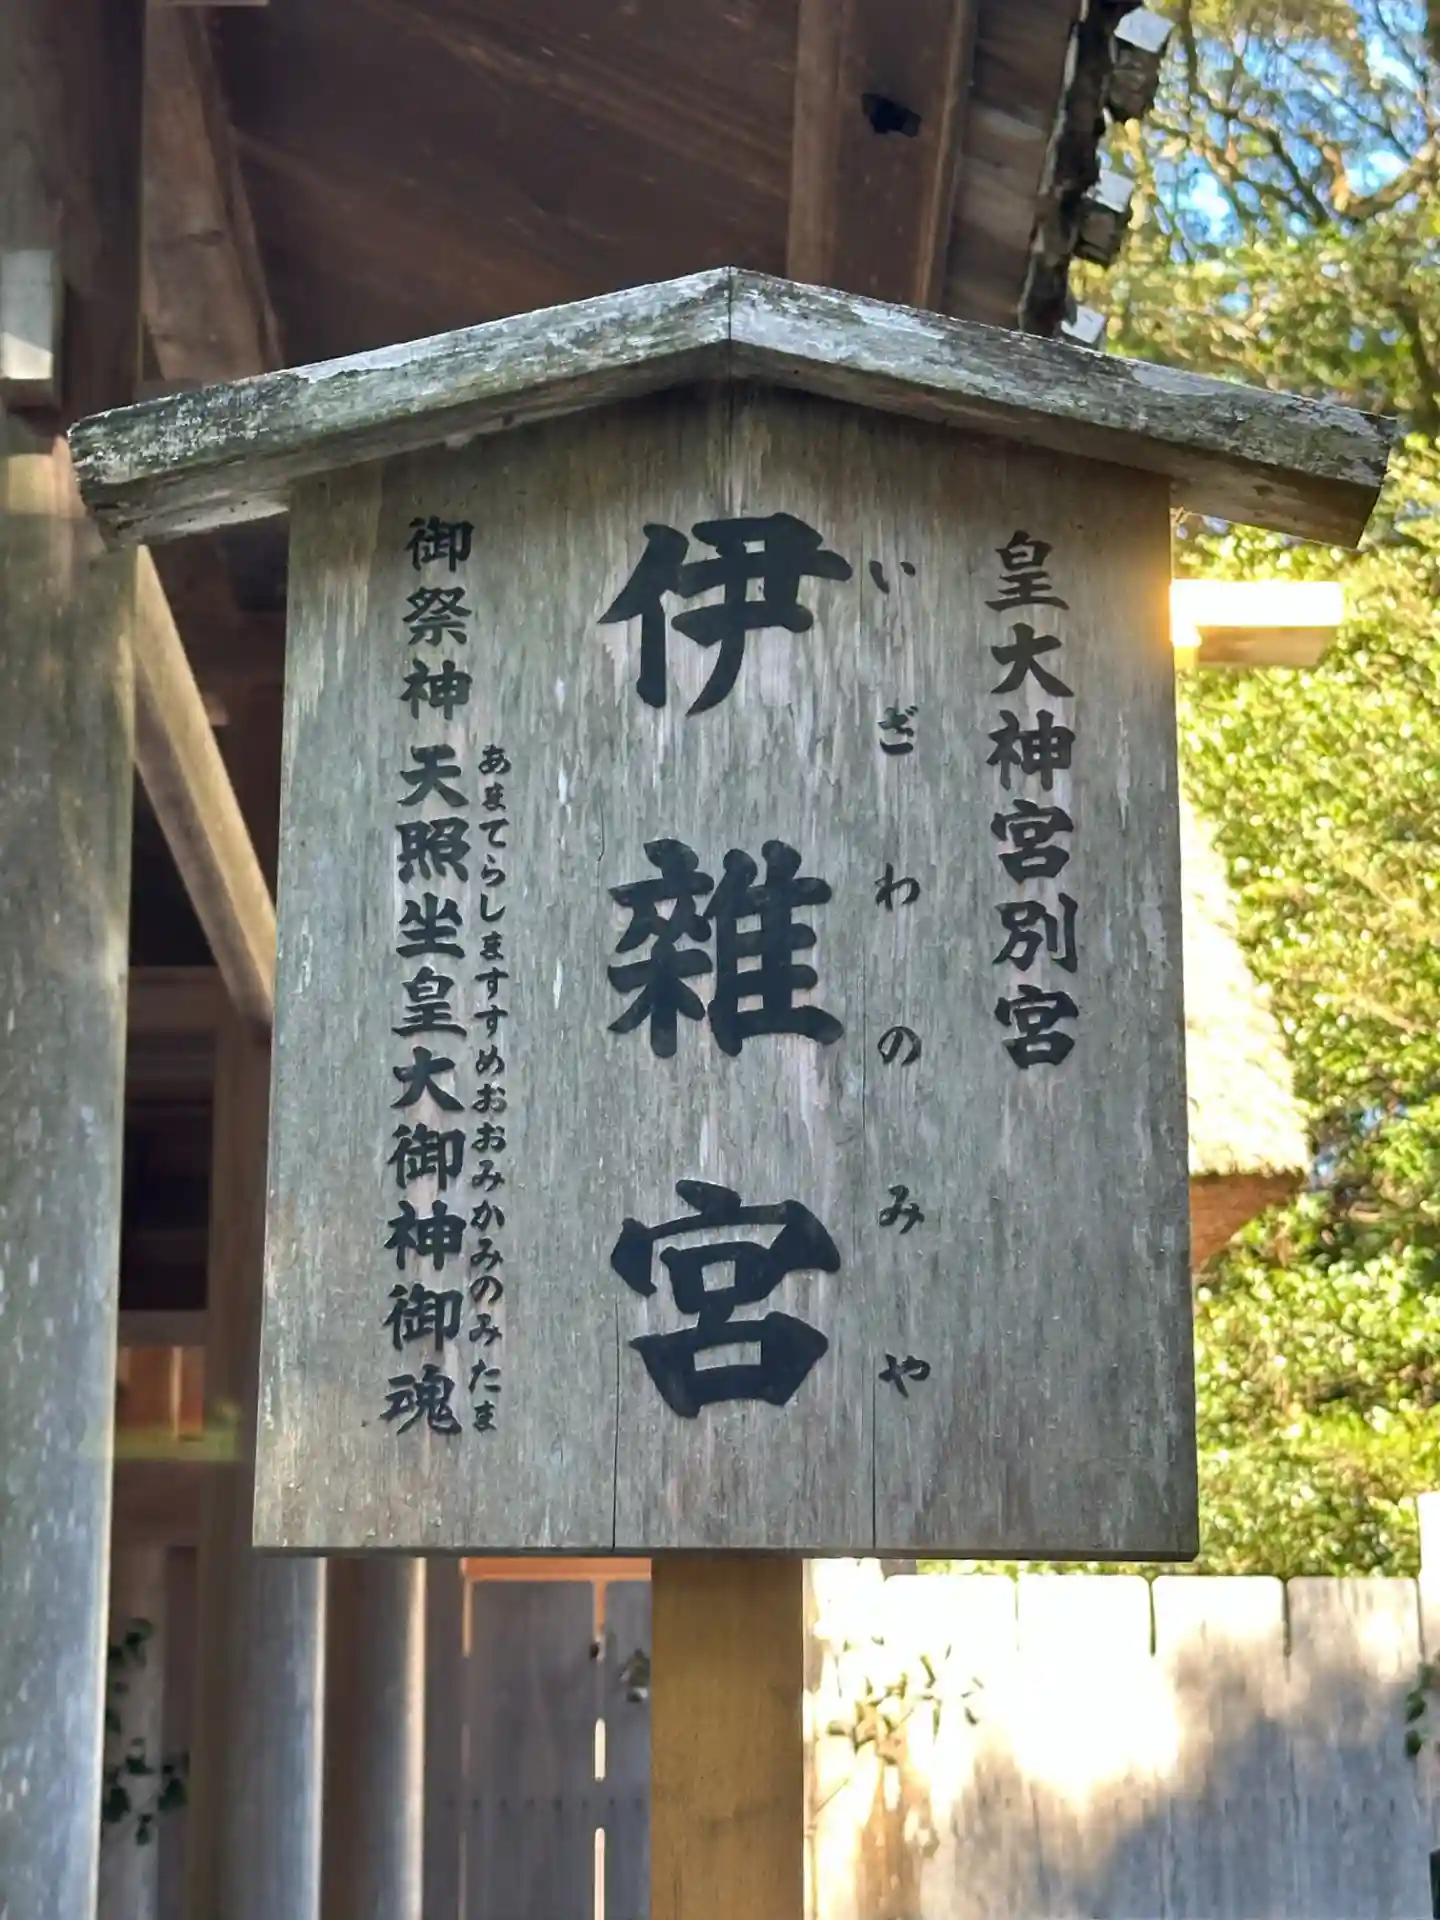 皇大神宮別宮
いざわのみや
伊雜宮
あまてらしますすめおおみかみのみたま
御祭神 天照坐皇大御神御魂